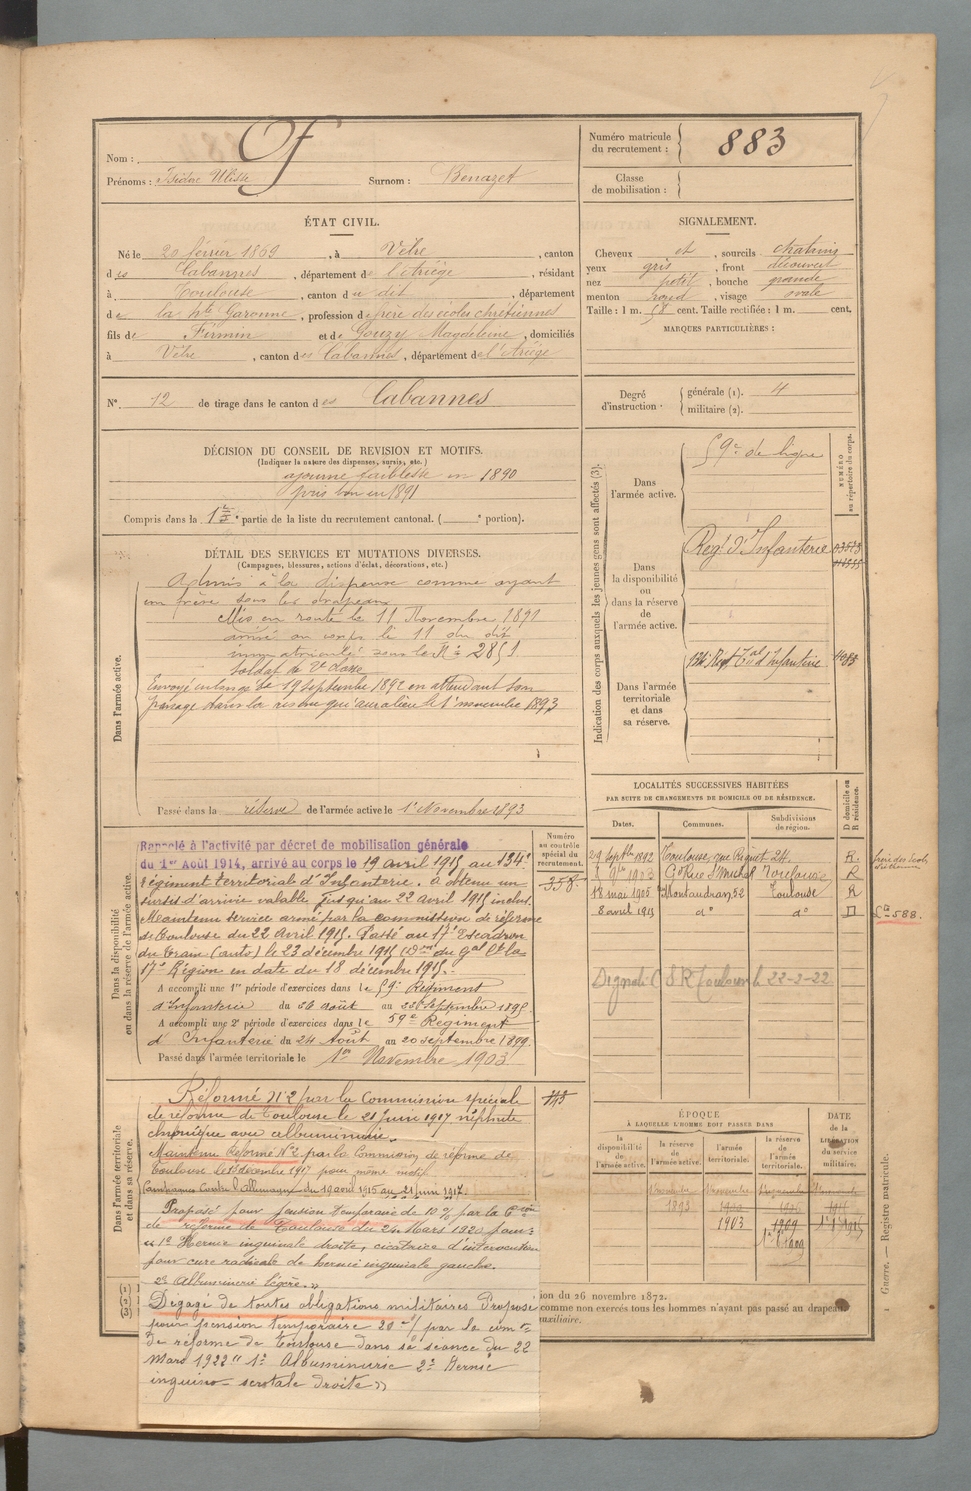 Nom :
Prénoms : Isidore Ulisse Surnom : Benazet
Numéro matricule du recrutement : 883
Classe de mobilisation :
ÉTAT CIVIL.
Né le 20 février 1869, à Vèbre, canton
des Cabannes, département de l'Ariège, résidant
à Toulouse, canton du dit, département
de la Hte Garonne, profession de frère des écoles chrétiennes
fils de Firmin et de Gouzy Magdeleine, domiciliés
à Vèbre, canton des Cabannes, département de l'Ariège
N° 12 de tirage dans le canton des Cabannes
SIGNALEMENT.
Cheveux et, sourcils chatains
yeux gris, front découvert
nez petit, bouche grande
menton rond, visage ovale
Taille : 1 m. 58 cent. Taille rectifiée : 1 m. cent.
MARQUES PARTICULIÈRES :
Degré d'instruction. générale (1). 4
militaire (2).
DÉCISION DU CONSEIL DE REVISION ET MOTIFS.
(Indiquer la nature des dispenses, sursis, etc.)
ajourné faiblesse en 1890
pris bon en 1891
Compris dans la 1re partie de la liste du recrutement cantonal. ( e portion).
DÉTAIL DES SERVICES ET MUTATIONS DIVERSES.
(Campagnes, blessures, actions d'éclat, décorations, etc.)
Dans l'armée active.
Admis à la dispense comme ayant
un frère sous les drapeaux
Mis en route le 11 Novembre 1891
arrivé au corps le 11 du dit
immatriculé sous le N° 2851
soldat de 2e classe
Envoyé en congé le 19 septembre 1892 en attendant son
passage dans la réserve qui aura lieu le 1er novembre 1893
Passé dans la réserve de l'armée active le 1er Novembre 1893
Indication des corps auxquels les jeunes gens sont affectés (3).
NUMÉRO au répertoire du corps.
Dans l'armée active.
59e de ligne
Dans la disponibilité ou dans la réserve de l'armée active.
Regt d'Infanterie
Dans l'armée territoriale et dans sa réserve.
134e Regt Tal d'Infanterie
LOCALITÉS SUCCESSIVES HABITÉES
PAR SUITE DE CHANGEMENTS DE DOMICILE OU DE RÉSIDENCE.
Dates. Communes. Subdivisions de région. D domicile ou R résidence.
29 Septbre 1892 Toulouse, rue Riquet 24. R.
8 9bre 1903 Gde Rue St Michel Toulouse R
18 mai 1905 Montaudran, 52 Toulouse R
8 avril 1913 d° d° D
588.
Signalé C S R Toulouse le 22-2-22
Dans la disponibilité ou dans la réserve de l'armée active.
Numéro au contrôle spécial du recrutement.
358.
Rappelé à l'activité par décret de mobilisation générale
du 1er Août 1914, arrivé au corps le 19 avril 1915 au 134e
régiment territorial d'Infanterie. A obtenu un
sursis d'arrivée valable jusqu'au 22 Avril 1915 inclus.
Maintenu service armé par la commission de réforme
de Toulouse du 22 Avril 1915. Passé au 17e Escadron
du Train (auto) le 23 décembre 1915 (Don du Gal Ct la
17e Région en date du 18 décembre 1915.
A accompli une 1re période d'exercices dans le 59e Régiment
d'Infanterie du 26 août au 22 septembre 1895
A accompli une 2e période d'exercices dans le 59e Regiment
d'Infanterie du 24 Août au 20 septembre 1899.
Passé dans l'armée territoriale le 1er Novembre 1903
Dans l'armée territoriale et dans sa réserve.
Réformé N° 2 par la Commission spéciale
de réforme de Toulouse le 21 juin 1917 néphrite
chronique avec albuminurie.
Maintenu Réformé N° 2 par la Commission de réforme de
Toulouse le 13 décembre 1917 pour même motif.
Campagnes Contre l'Allemagne du 19 avril 1915 au 21 juin 1917
Proposé pour pension temporaire de 10 % par la Con
de réforme de Toulouse du 24 Mars 1920 pour :
« 1° Hernie inguinale droite, cicatrice d'intervention
pour cure radicale de hernie inguinale gauche.
2° Albuminurie légère. »
Dégagé de toutes obligations militaires Proposé
pour pension temporaire 20 % par la comon
de réforme de Toulouse dans sa séance du 22
Mars 1922 « 1° Albuminurie 2° Hernie
inguino-scrotale droite »
ÉPOQUE
À LAQUELLE L'HOMME DOIT PASSER DANS
DATE de la LIBÉRATION du service militaire.
la disponibilité de l'armée active. la réserve de l'armée active. l'armée territoriale. la réserve de l'armée territoriale.
1893 1903 1909
(1)
(2)
(3)
ion du 26 novembre 1872.
comme non exercés tous les hommes n'ayant pas passé au drapeau
auxiliaire.
Guerre. — Registre matricule.